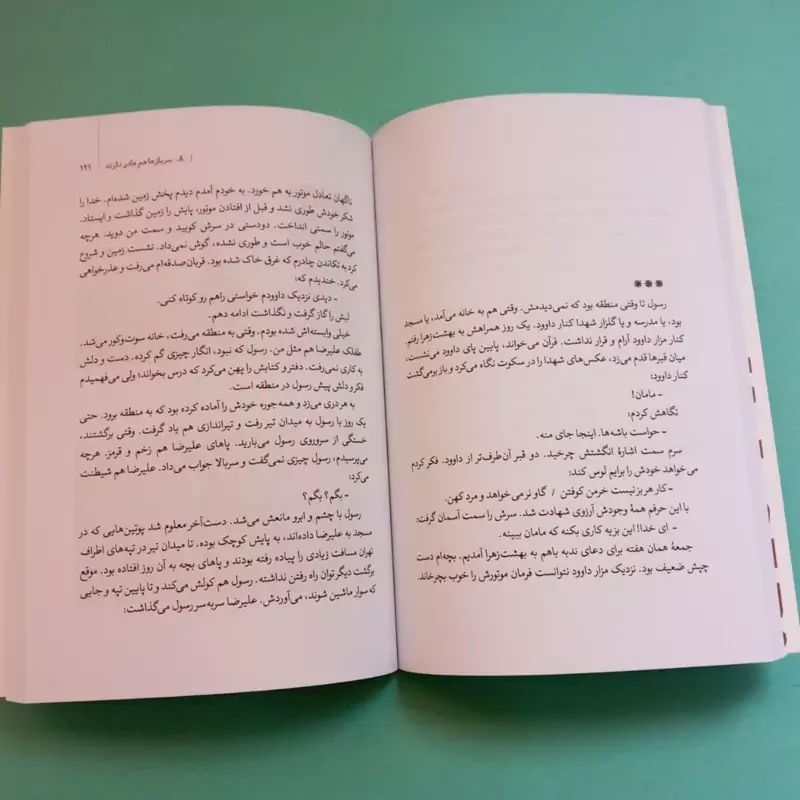 ***
رسول تا وقتی منطقه بود که نمی‌دیدمش. وقتی هم به خانه می‌آمد، یا مسجد
بود، یا مدرسه و یا گلزار شهدا کنار داوود. یک روز همراهش به بهشت‌زهرا رفتم.
کنار مزار داوود آرام و قرار نداشت. قرآن می‌خواند، پایین پای داوود می‌نشست،
میان قبرها قدم می‌زد، عکس‌های شهدا را در سکوت نگاه می‌کرد و باز برمی‌گشت
کنار داوود:
- مامان!
نگاهش کردم:
- حواست باشه‌ها. اینجا جای منه.
سرم سمت اشارهٔ انگشتش چرخید. دو قبر آن‌طرف‌تر از داوود. فکر کردم
می‌خواهد خودش را برایم لوس کند:
- کار هر بز نیست خرمن کوفتن / گاو نر می‌خواهد و مرد کهن.
با این حرفم همهٔ وجودش آرزوی شهادت شد. سرش را سمت آسمان گرفت:
- ای خدا!! این بزیه کاری بکنه که مامان ببینه.
جمعهٔ همان هفته برای دعای ندبه باهم به بهشت‌زهرا آمدیم. بچه‌ام دست
چپش ضعیف بود. نزدیک مزار داوود نتوانست فرمان موتورش را خوب بچرخاند.
۸. سربازها هم مادر دارند | ۱۲۱
ناگهان تعادل موتور به هم خورد. به خودم آمدم دیدم پخش زمین شده‌ام. خدا را
شکر خودش طوری نشد و قبل از افتادن موتور، پایش را زمین گذاشت و ایستاد.
موتور را سمتی انداخت. دودستی در سرش کوبید و سمت من دوید. هرچه
می‌گفتم حالم خوب است و طوری نشده، گوش نمی‌داد. نشست زمین و شروع
کرد به تکاندن چادرم که غرق خاک شده بود. قربان‌صدقه‌ام می‌رفت و عذرخواهی
می‌کرد. خندیدم که:
- دیدی نزدیک داوودم خواستی راهم رو کوتاه کنی.
لبش را گاز گرفت و نگذاشت ادامه دهم.
خیلی وابسته‌اش شده بودم. وقتی به منطقه می‌رفت، خانه سوت‌وکور می‌شد.
طفلک علیرضا هم مثل من. رسول که نبود، انگار چیزی گم کرده. دست و دلش
به کاری نمی‌رفت. دفتر و کتابش را پهن می‌کرد که درس بخواند؛ ولی می‌فهمیدم
فکر و دلش پیش رسول در منطقه است.
به هر دری می‌زد و همه‌جوره خودش را آماده کرده بود که به منطقه برود. حتی
یک روز با رسول به میدان تیر رفت و تیراندازی هم یاد گرفت. وقتی برگشتند،
خستگی از سروروی رسول می‌بارید. پاهای علیرضا هم زخم و قرمز. هرچه
می‌پرسیدم، رسول چیزی نمی‌گفت و سربالا جواب می‌داد. علیرضا هم شیطنت
می‌کرد:
- بگم؟ بگم؟
رسول با چشم و ابرو مانعش می‌شد. دست‌آخر معلوم شد پوتین‌هایی که در
مسجد به علیرضا داده‌اند، به پایش کوچک بوده. تا میدان تیر در تپه‌های اطراف
تهران مسافت زیادی را پیاده رفته بودند و پاهای بچه به آن روز افتاده بود. موقع
برگشت دیگر توان راه رفتن نداشته. رسول هم کولش می‌کند و تا پایین تپه و جایی
که سوار ماشین شوند، می‌آوردش. علیرضا سربه‌سر رسول می‌گذاشت: